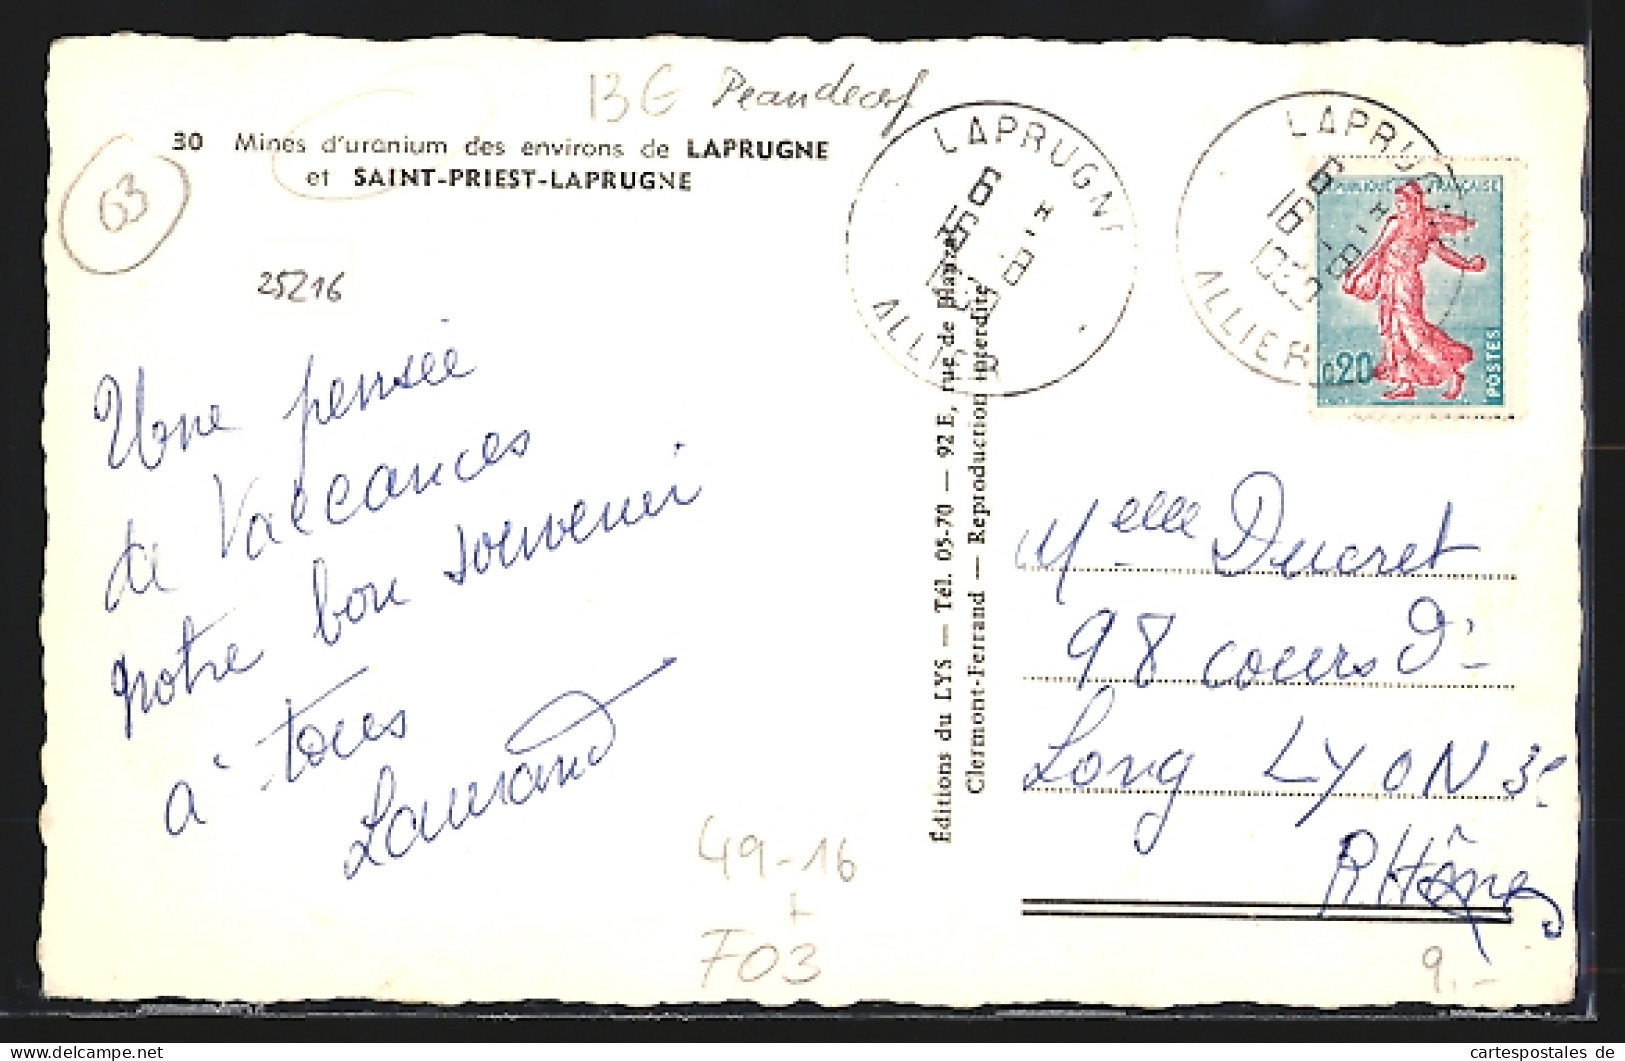 BG
30 Mines d'uranium des environs de LAPRUGNE
et SAINT-PRIEST-LAPRUGNE
63
25216
Une pensée
de Vaccances
notre bon souvenir
à tous
Laurand
49-16
+
F03
Éditions du LYS — Tél. 05-70 — 92 E, rue de
Clermont-Ferrand — Reproduction interdite
LAPRUGNE
ALLIER
LAPRUGNE
ALLIER
RÉPUBLIQUE FRANÇAISE
0,20
POSTES
Melle Ducret
98 cours D'
Long LYON 3e
RHône
9.-
cartespostales de